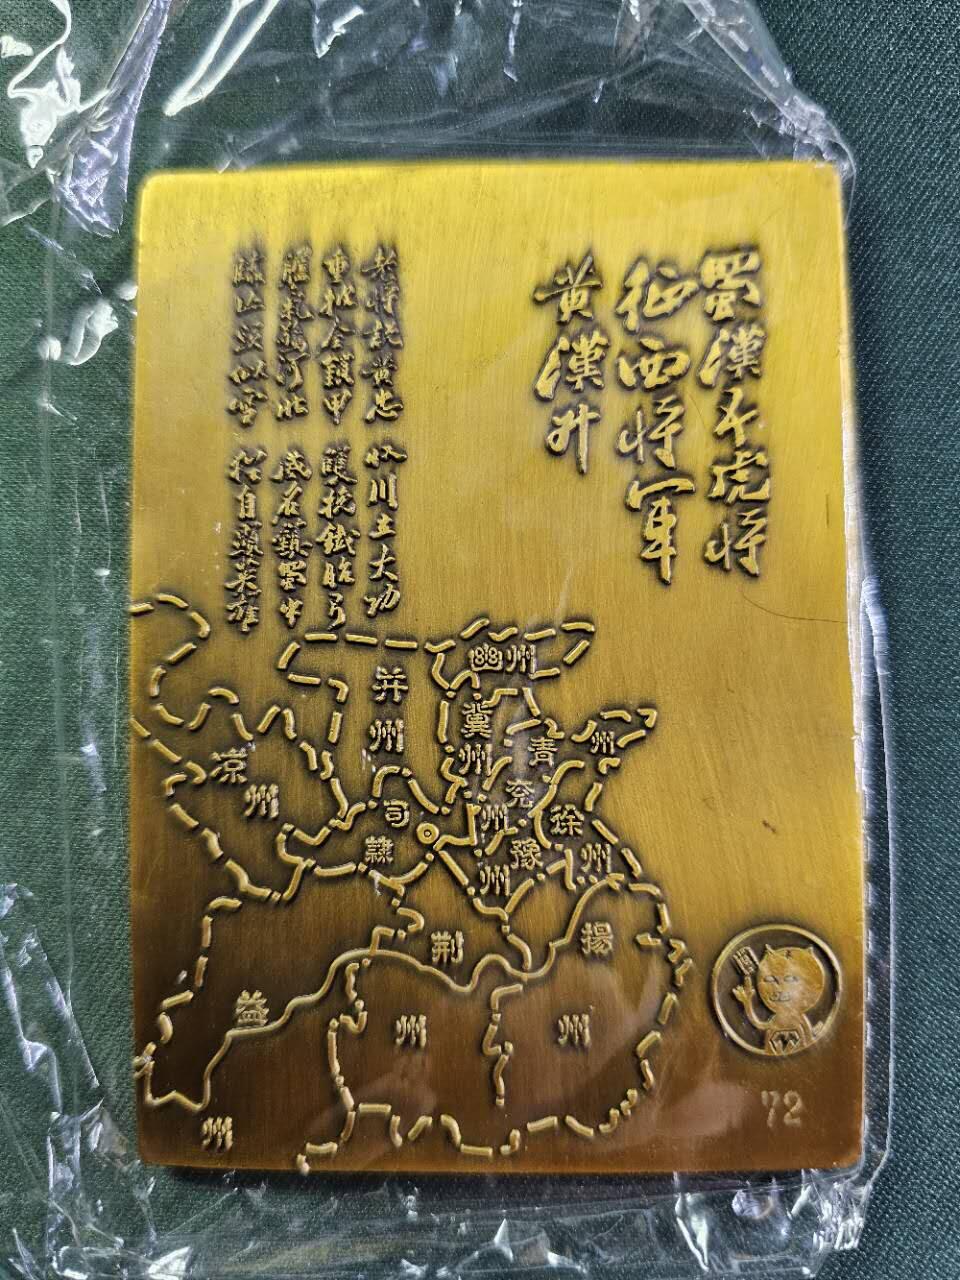 蜀漢五虎将
征西将軍
黄漢升
老将說黄忠 收川立大功
重披金鎖甲 雙挽鐵胎弓
膽氣驚河北 威名鎮蜀中
臨亡頭似雪 猶自顯英雄
幽州
并州
冀州
青州
兗州
凉州
司隸
徐州
豫州
荆州
揚州
益州
72